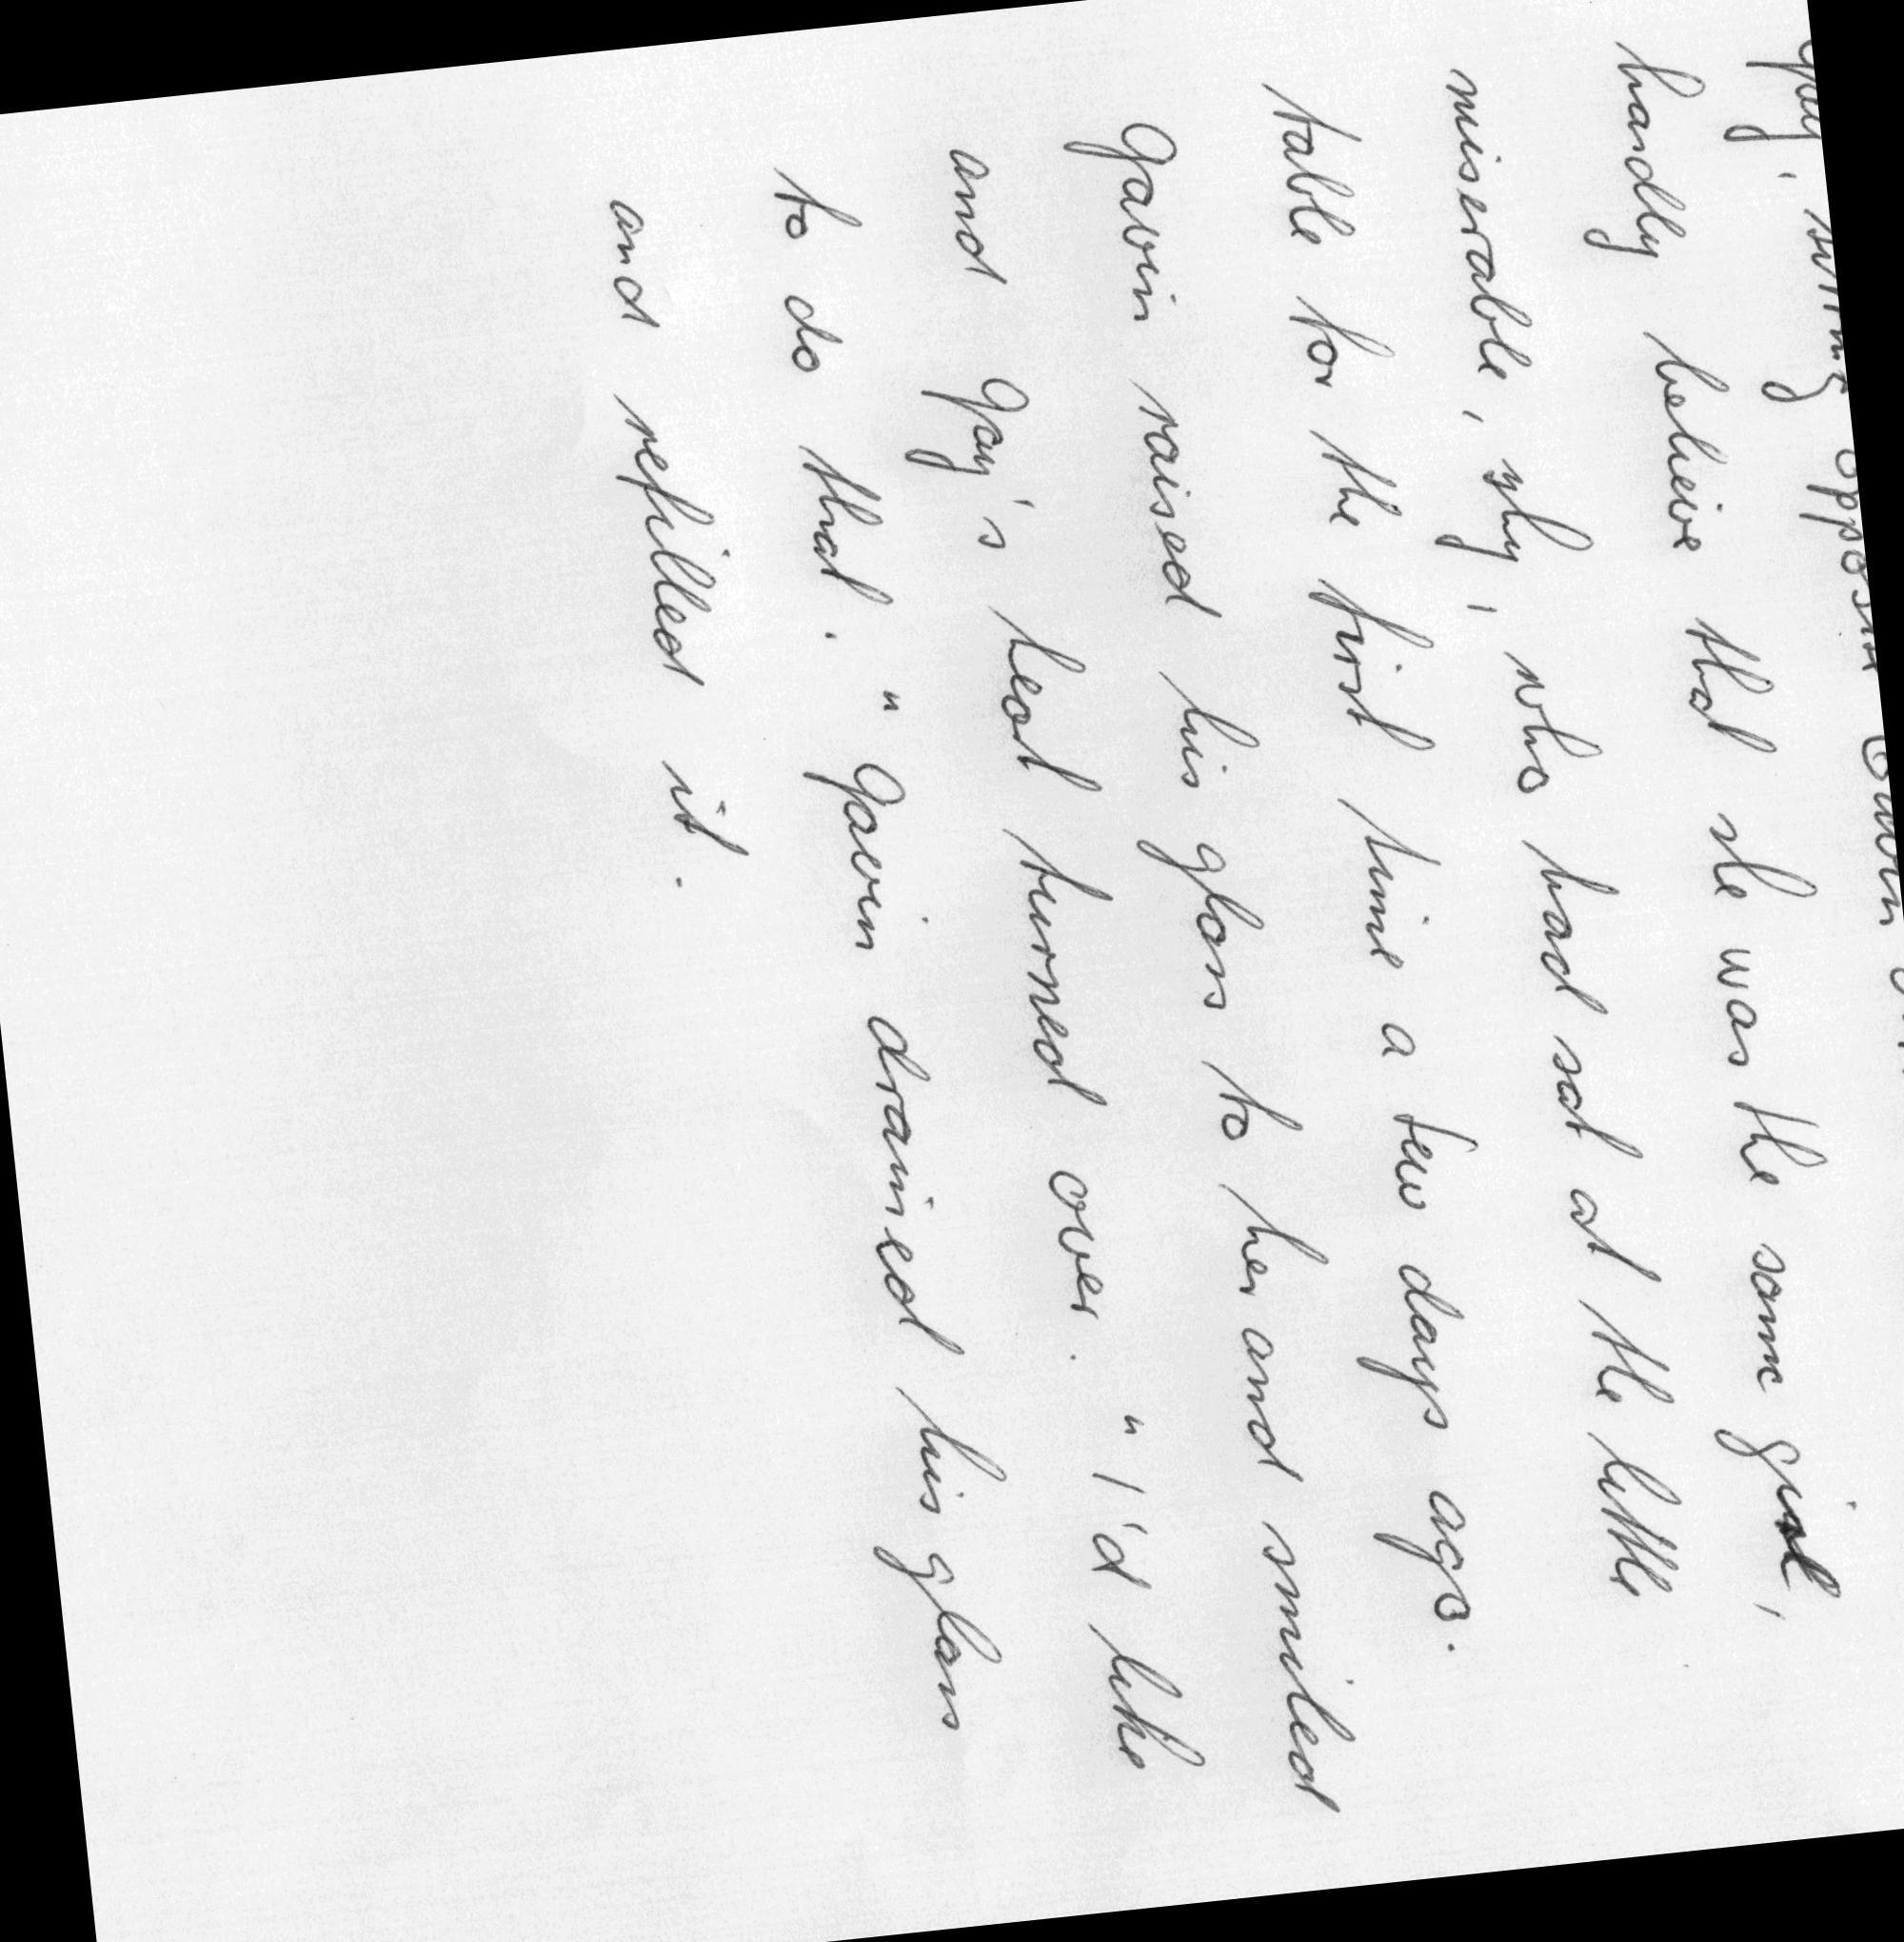 Gay, sitting opposite Gavin
hardly believe that she was the same girl,
miserable, shy, who had sat at the little
table for the first time a few days ago.
Gavin raised his glass to her and smiled
and Gay's heart turned over. "I'd like
to do that." Gavin drained his glass
and refilled it.